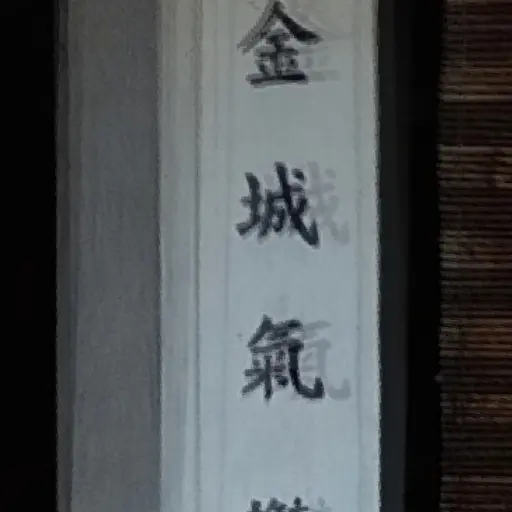 金城氣